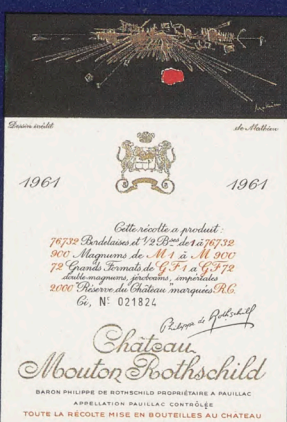 Dessin inédit de Mathieu
1961 1961
Cette récolte a produit :
76732 Bordelaises et 1/2 Bses de 1 à 76732
900 Magnums de M 1 à M 900
72 Grands Formats de G F 1 à G F 72
double magnums, jéroboams, impériales
2000 "Réserve du Château" marquées R.C.
Ci, Nº 021824
Philippe de Rothschild
Château
Mouton Rothschild
BARON PHILIPPE DE ROTHSCHILD PROPRIÉTAIRE A PAUILLAC
APPELLATION PAUILLAC CONTRÔLÉE
TOUTE LA RÉCOLTE MISE EN BOUTEILLES AU CHATEAU